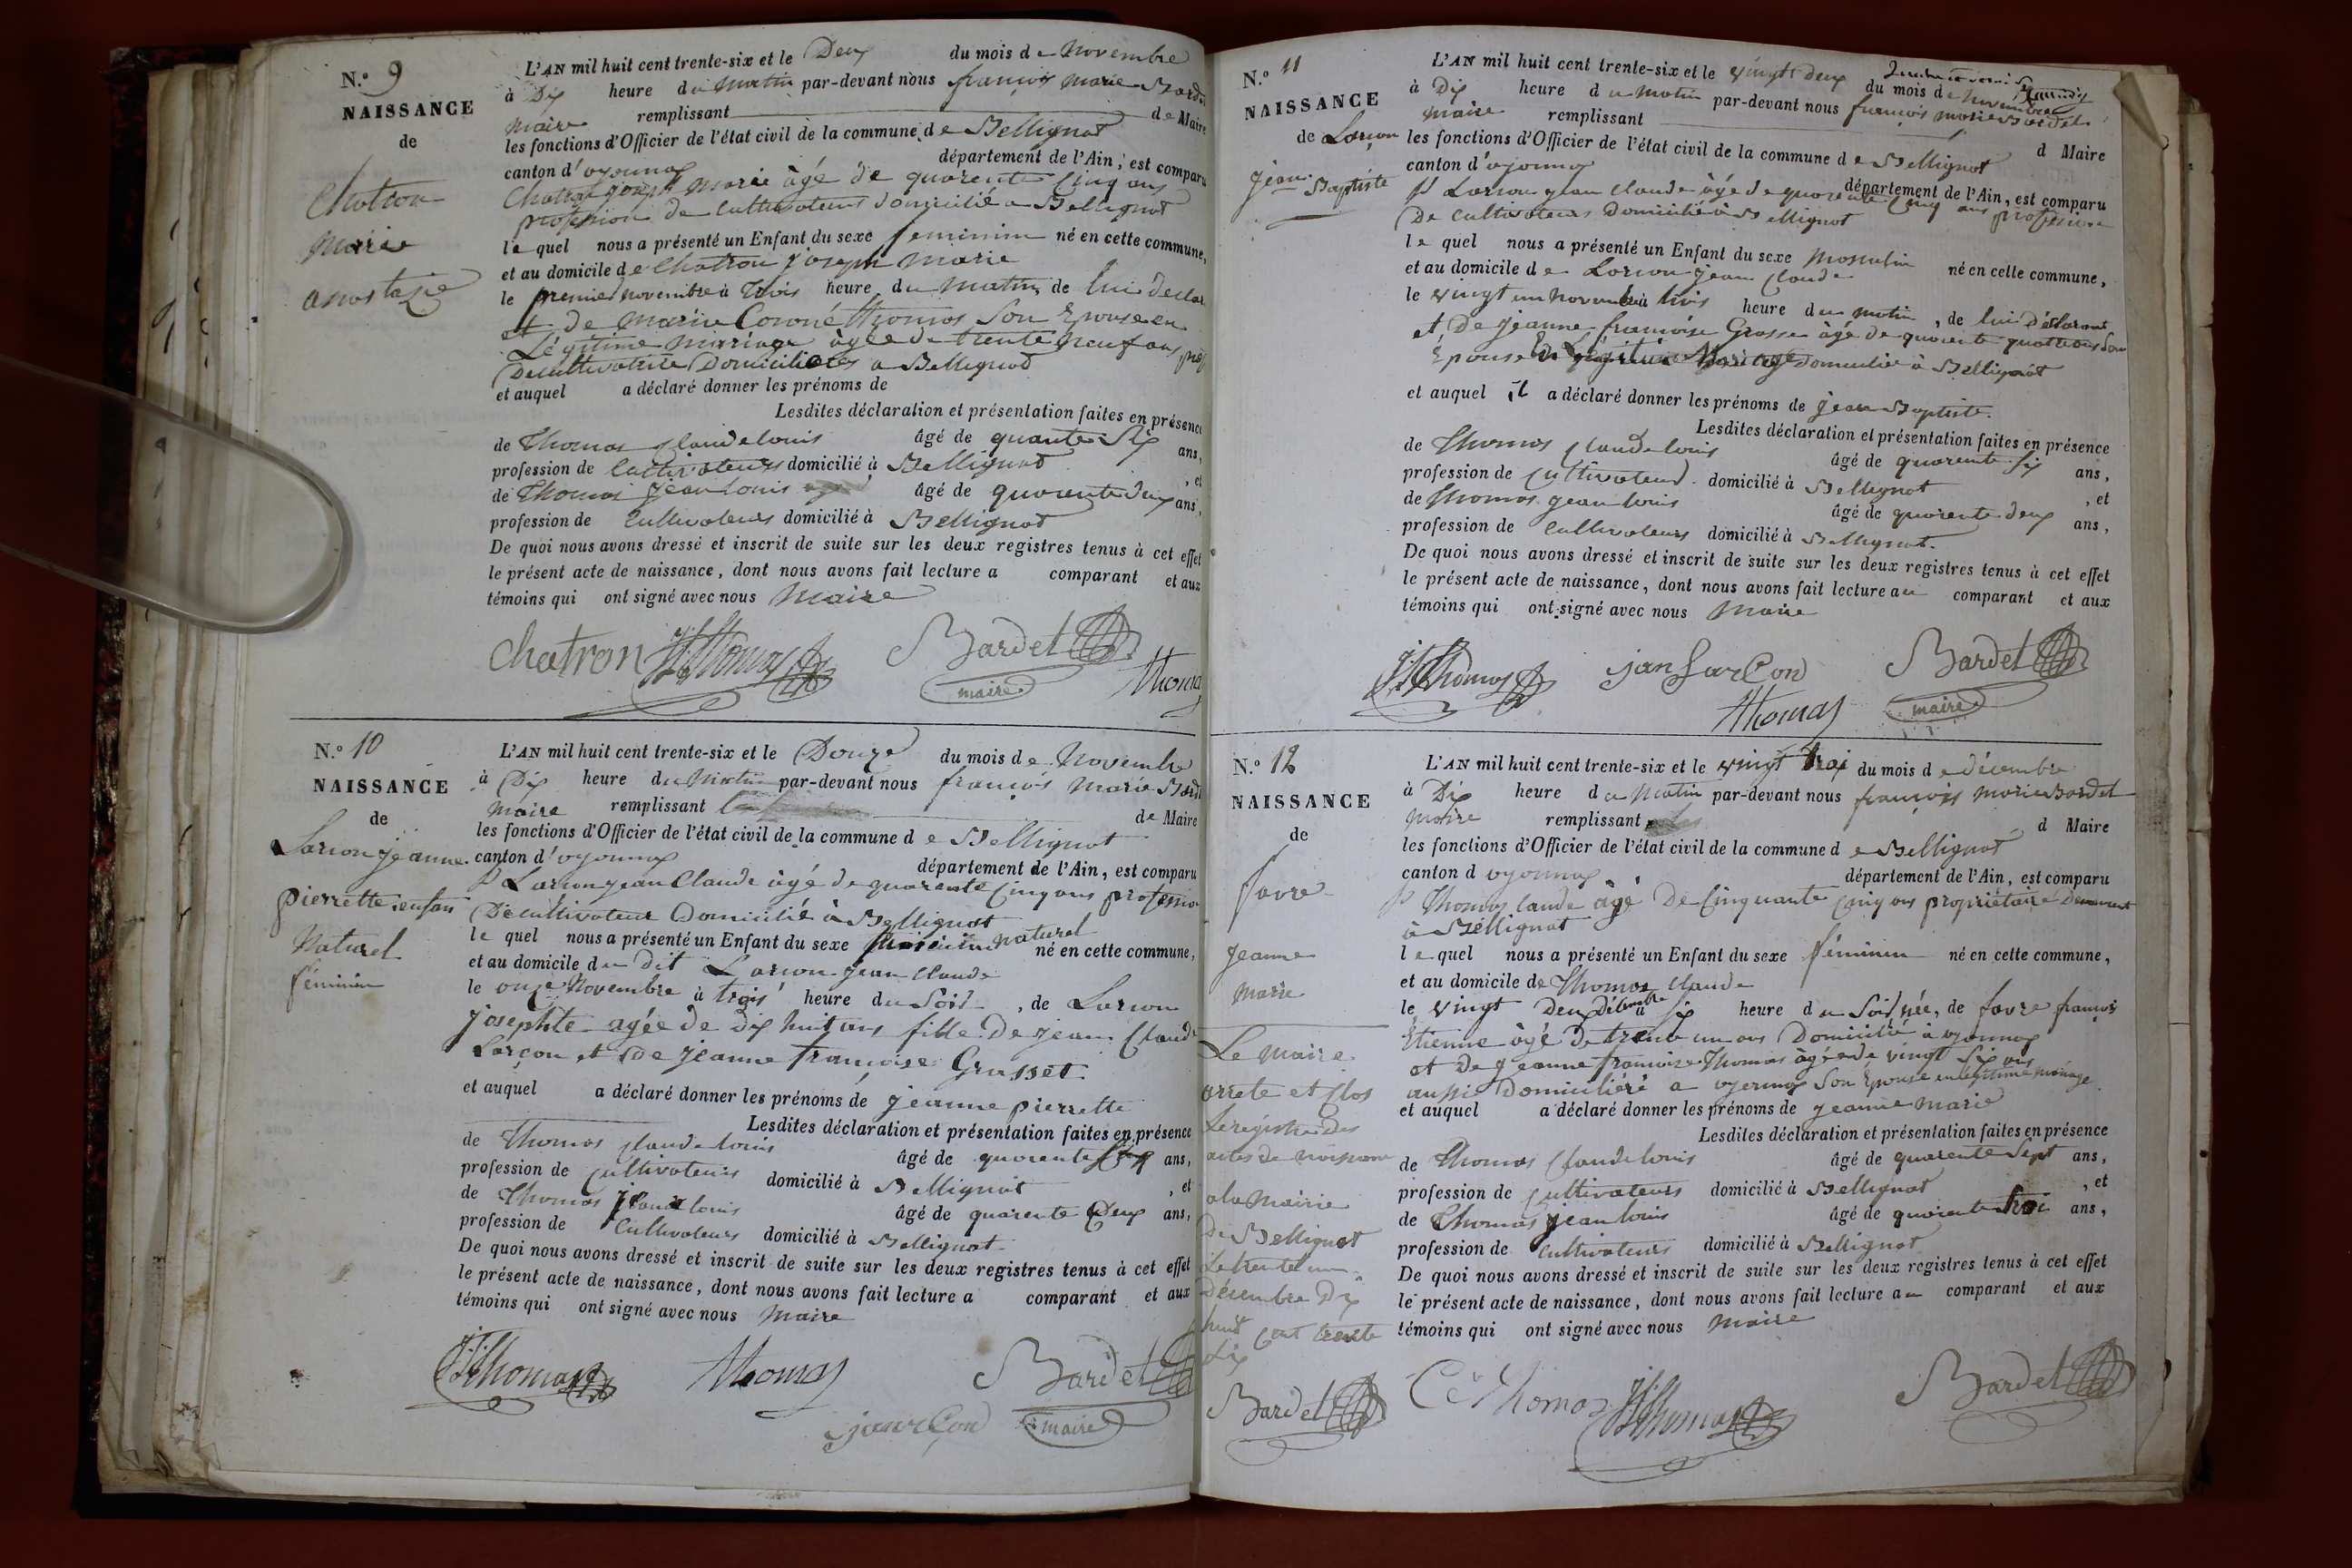 N.º 9
NAISSANCE
de
Chatron
Marie
anastasie
L'AN mil huit cent trente-six et le Deux du mois de Novembre
à Dix heure du Matin par-devant nous françois Marie Bardet
Maire remplissant de Maire
les fonctions d'Officier de l'état civil de la commune de Bellignat
canton d'oyonnax département de l'Ain, est comparu
Chatron Joseph Marie âgé de quarente Cinq ans
profession de Cultivateur domicilié a Bellignat
le quel nous a présenté un Enfant du sexe feminin né en cette commune,
et au domicile de Chatron Joseph Marie
le premier novembre à trois heure du Matin de lui déclar
et de Marie Thomas Son Epouse en
Légitime Mariage âgée de trente neuf ans prof
De cultivatrice Domiciliées a Bellignat
et auquel a déclaré donner les prénoms de
Lesdites déclaration et présentation faites en présence
de Thomas Claude louis âgé de quarante Six ans,
profession de Cultivateurs domicilié à Bellignat , et
de Thomas Jean louis âgé de quarente deux ans,
profession de Cultivateurs domicilié à Bellignat
De quoi nous avons dressé et inscrit de suite sur les deux registres tenus à cet effet
le présent acte de naissance, dont nous avons fait lecture a comparant et aux
témoins qui ont signé avec nous Maire
chatron JLThomas Bardet
maire Thomas
N.º 10
NAISSANCE
de
Larçon jeanne
pierrette enfan
Naturel
féminin
L'AN mil huit cent trente-six et le Douze du mois de Novembre
à Dix heure du Matin par-devant nous françois Marie Bardet
Maire remplissant de Maire
les fonctions d'Officier de l'état civil de la commune de Bellignat
canton d'oyonnax département de l'Ain, est comparu
Larçon jean Claude âgé de quarente Cinq ans profession
De cultivateur Domicilié à Bellignat
le quel nous a présenté un Enfant du sexe féminin naturel né en cette commune,
et au domicile du dit Larçon jean claude
le onze Novembre à trois heure du Soir , de Larçon
Josephte agée de Dix huit ans fille De jean Claude
Larçon et De jeanne françoise Grasset
et auquel a déclaré donner les prénoms de jeanne pierrette
Lesdites déclaration et présentation faites en présence
de Thomas Claude louis âgé de quarente Six ans,
profession de Cultivateurs domicilié à Bellignat , et
de Thomas Jean louis âgé de quarente Deux ans,
profession de Cultivateurs domicilié à Bellignat
De quoi nous avons dressé et inscrit de suite sur les deux registres tenus à cet effet
le présent acte de naissance, dont nous avons fait lecture a comparant et aux
témoins qui ont signé avec nous Maire
JLThomas Thomas Bardet
jan larÇon maire
N.º 11
NAISSANCE
de Larçon
jean
Baptiste
L'AN mil huit cent trente-six et le vingt deux du mois de Novembre
à Dix heure du Matin par-devant nous françois Marie Bardet
Maire remplissant d Maire
les fonctions d'Officier de l'état civil de la commune de Bellignat
canton d'oyonnax département de l'Ain, est comparu
Larçon jean Claude âgé de quarente Cinq ans profession
De Cultivateurs Domicilié à Bellignat
le quel nous a présenté un Enfant du sexe Masculin né en cette commune,
et au domicile de Larçon jean Claude
le vingt un Novembre à trois heure du Matin , de lui déclarant
et De jeanne françoise Grasset âgé de quarente quatre ans Son
Epouse En Légitime Mariage Domicilié à Bellignat
et auquel il a déclaré donner les prénoms de jean Baptiste.
Lesdites déclaration et présentation faites en présence
de Thomas Claude louis âgé de quarente Six ans,
profession de Cultivateurs domicilié à Bellignat , et
de Thomas jean louis âgé de quarente deux ans,
profession de Cultivateurs domicilié à Bellignat.
De quoi nous avons dressé et inscrit de suite sur les deux registres tenus à cet effet
le présent acte de naissance, dont nous avons fait lecture au comparant et aux
témoins qui ont signé avec nous Maire
JLThomas jan larÇon Bardet
Thomas maire
N.º 12
NAISSANCE
de
favre
Jeanne
Marie
Le Maire
arrete et Clos
Le régistre Des
actes de naissance
a la Mairie
De Bellignat
Le trente un
Décembre Dix
huit Cent trente
Six
Bardet
L'AN mil huit cent trente-six et le vingt troi du mois de décembre
à Dix heure du Matin par-devant nous françois Marie Bardet
Maire remplissant d Maire
les fonctions d'Officier de l'état civil de la commune de Bellignat
canton d oyonnax département de l'Ain, est comparu
Thomas Claude âgé De Cinquante Cinq ans propriétaire Demeurant
à Bellignat
le quel nous a présenté un Enfant du sexe féminin né en cette commune,
et au domicile de Thomas Claude
le vingt Deux Décembre à Six heure du Soir née, de favre françois
Etienne âgé De trente un ans Domicilié à oyonnax
et De jeanne françoise Thomas âgée de vingt Six ans
aussi Domiciliéré a oyonnax Son Epouse en légitime mariage
et auquel a déclaré donner les prénoms de jeanne marie
Lesdites déclaration et présentation faites en présence
de Thomas Claude louis âgé de quarente Sept ans,
profession de Cultivateurs domicilié à Bellignat , et
de Thomas jean louis âgé de quarente troi ans,
profession de Cultivateurs domicilié à Bellignat
De quoi nous avons dressé et inscrit de suite sur les deux registres tenus à cet effet
le présent acte de naissance, dont nous avons fait lecture au comparant et aux
témoins qui ont signé avec nous Maire
Ce Thomas JLThomas Bardet